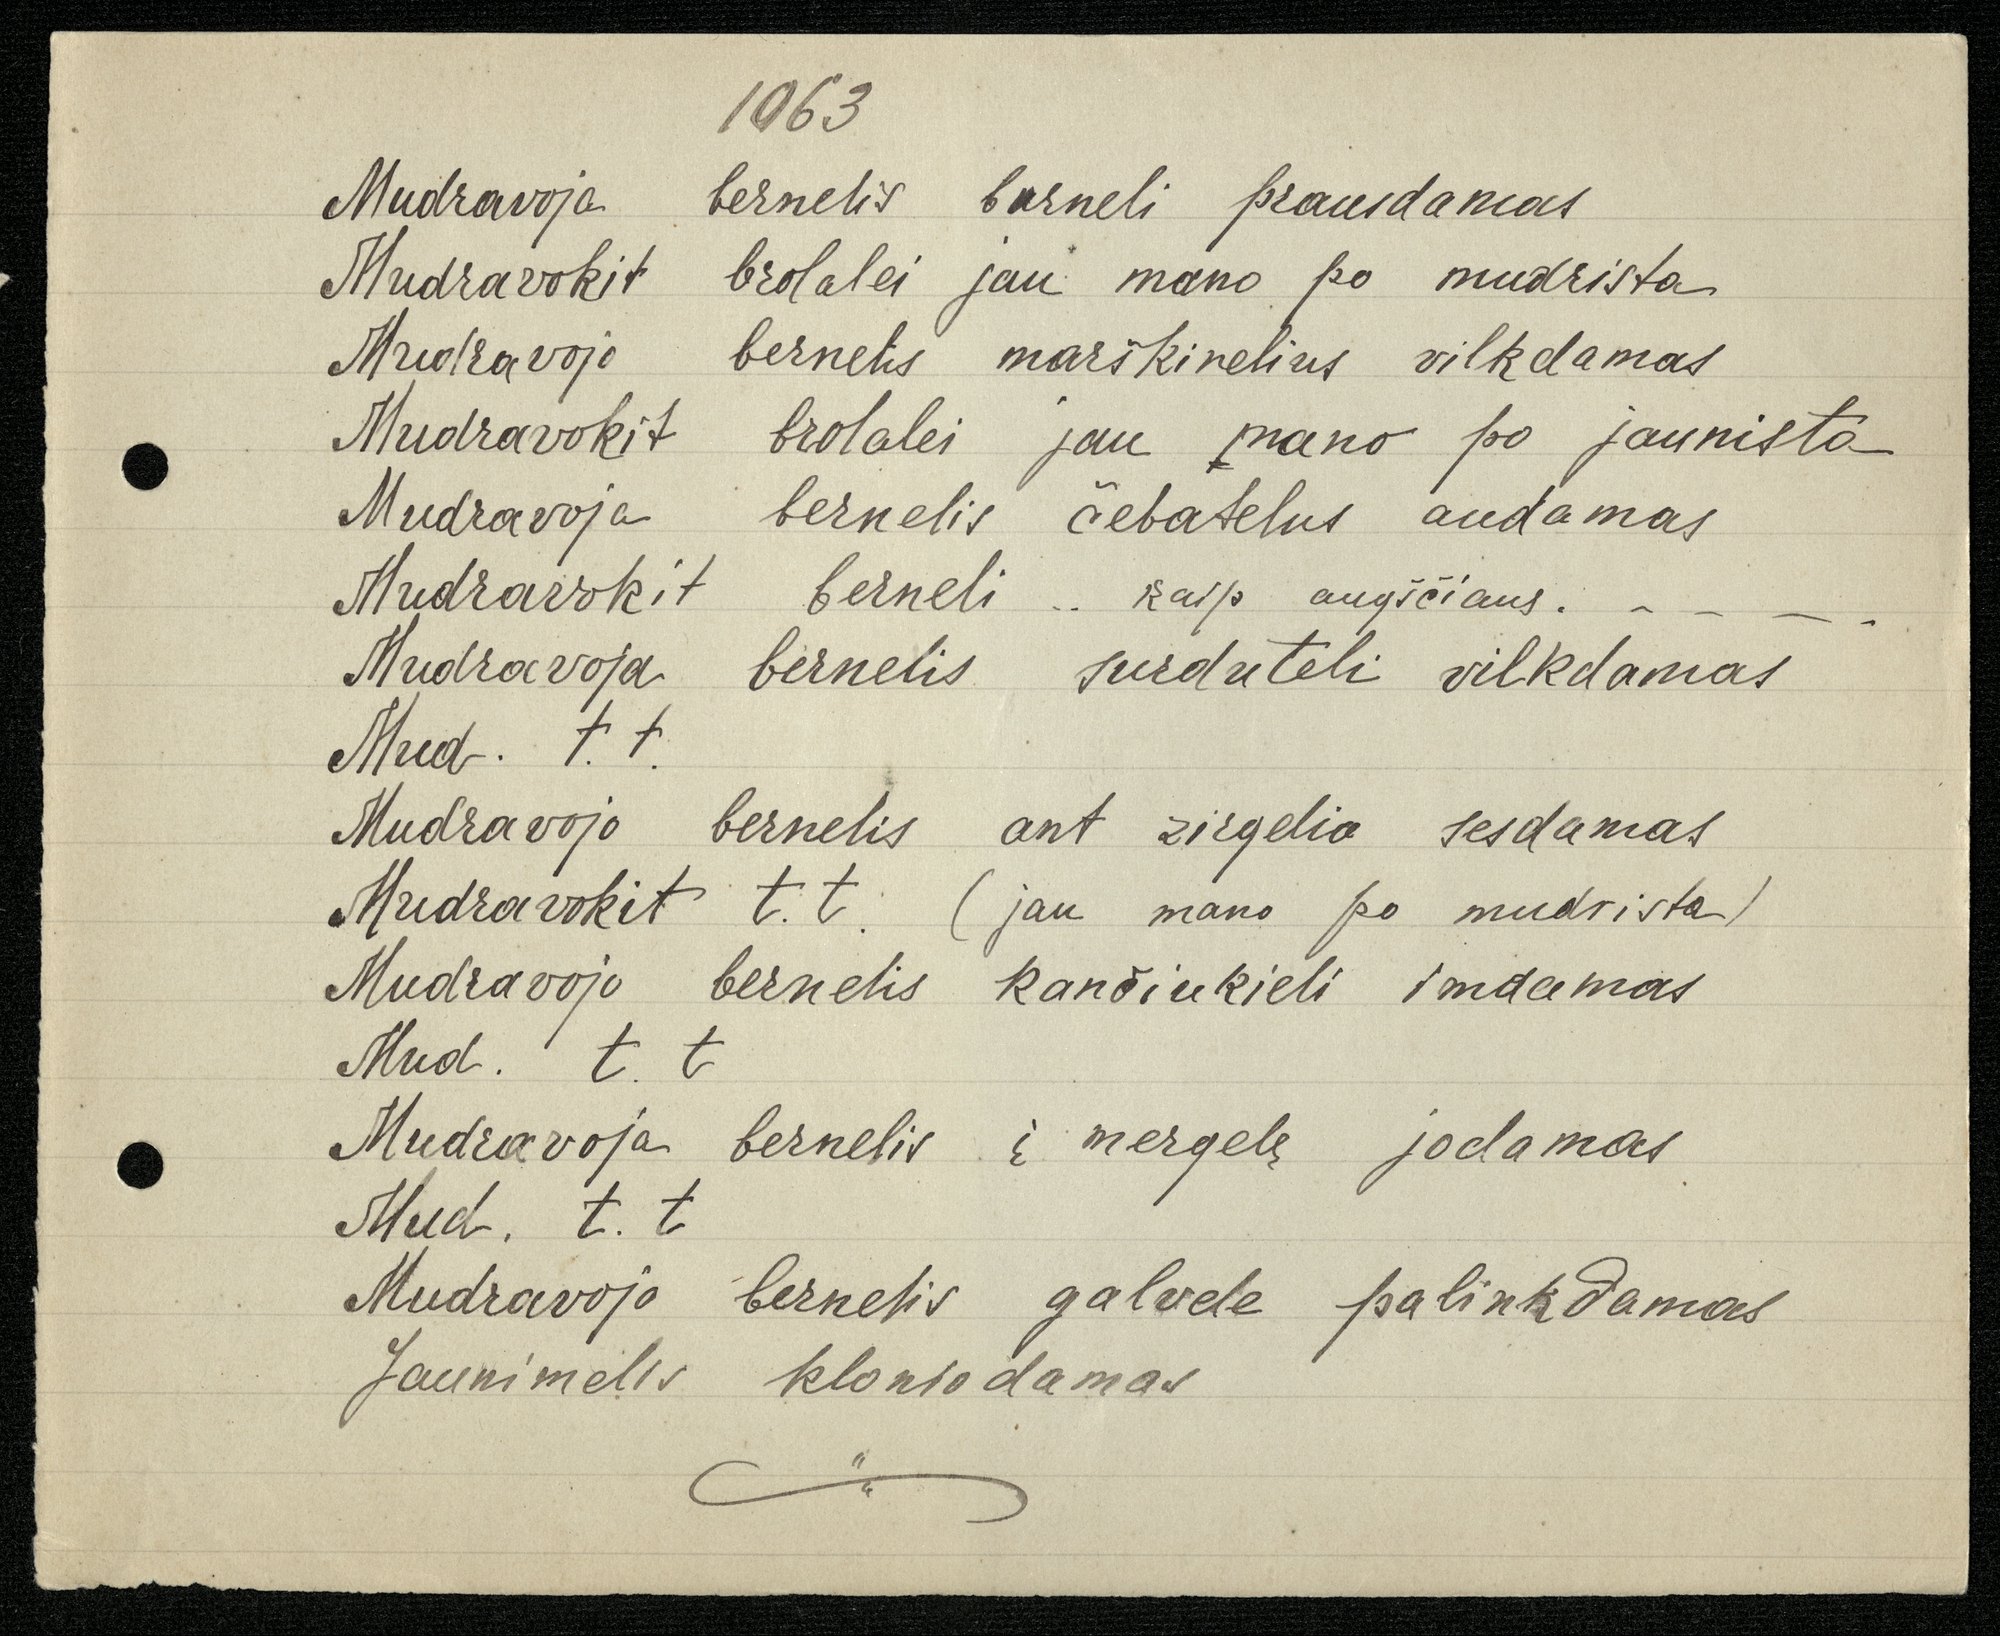 1063
Mudravoja bernelis burneli prausdamas
Mudravokit brolalei jau mano po mudrista
Mudravojo bernelis marškinelius vilkdamas
Mudravokit brolalei jau mano po jaunista
Mudravoja bernelis čebatelus audamas
Mudravokit berneli .. kaip augščiaus. - - - -
Mudravoja bernelis surduteli vilkdamas
Mud. t. t.
Mudravojo bernelis ant zirgelio sesdamas
Mudravokit t. t. (jau mano po mudrista)
Mudravojo bernelis kančiukieli imdamas
Mud. t. t
Mudravoja bernelis į mergelę jodamas
Mud. t. t
Mudravojo bernelis galvele palinkdamas
Jaunimelis kloniodamas